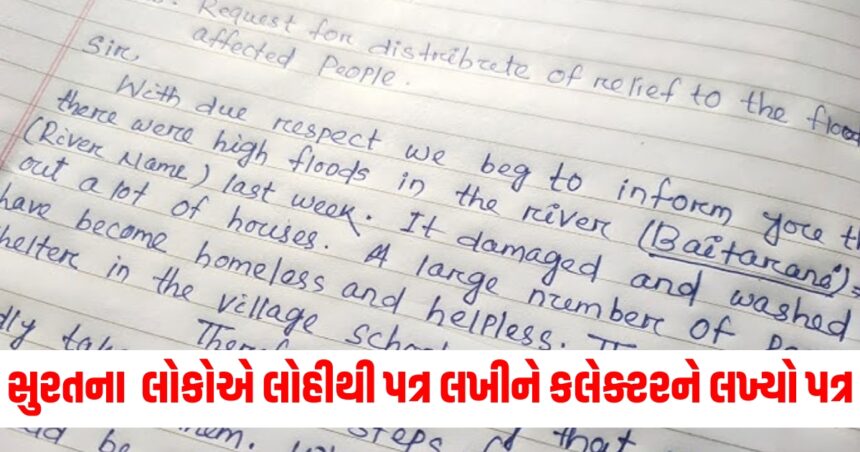 Request for distribute of relief to the flood
affected People.
Sir,
With due respect we beg to inform you th
there were high floods in the river (Baitarani)
(River Name) last week. It damaged and washed
out a lot of houses. A large number of
have become homeless and helpless.
helter in the village
સુરતના લોકોએ લોહીથી પત્ર લખીને કલેક્ટરને લખ્યો પત્ર
steps that
be